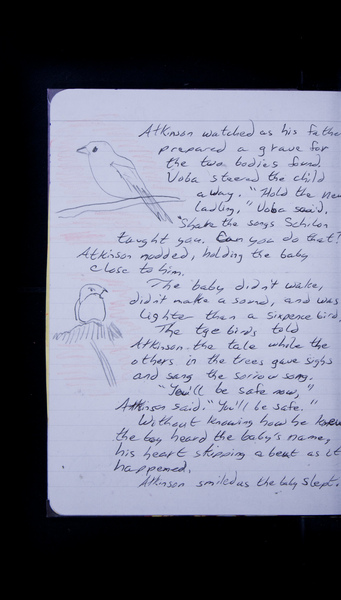 Atkinson watched as his fathe
prepared a grave for
the two bodies found.
Voba steered the child
away. "Hold the new
ladling," Voba said,
"Share the songs Schilon
taught you. Can you do that?
Atkinson nodded, holding the baby
close to him.
The baby didn't wake,
didn't make a sound, and was
lighter than a sixpence bird.
The tge birds told
Atkinson the tale while the
others in the trees gave sighs
and sang the sorrow song.
"You'll be safe now,"
Atkinson said, "You'll be safe."
Without knowing how he knew
the boy heard the baby's name,
his heart skipping a beat as it
happened.
Atkinson smiled as the baby slept.